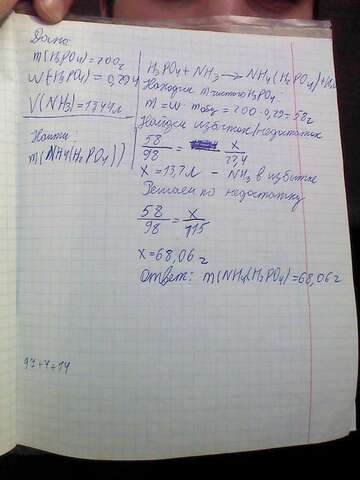 Дано:
m(H3PO4)=200г
w(H3PO4)=0,294
V(NH3)=13,44л
Найти:
m(NH4(H2PO4))
H3PO4+NH3→NH4(H2PO4)
Находим m чистого H3PO4:
m=w·mобщ=200·0,29=58г
Найдем избыток/недостаток
58/98 = x/22,4
x=13,7л - NH3 в избытке
Решаем по недостатку
58/98 = x/115
x=68,06г
Ответ: m(NH4(H2PO4)=68,06г